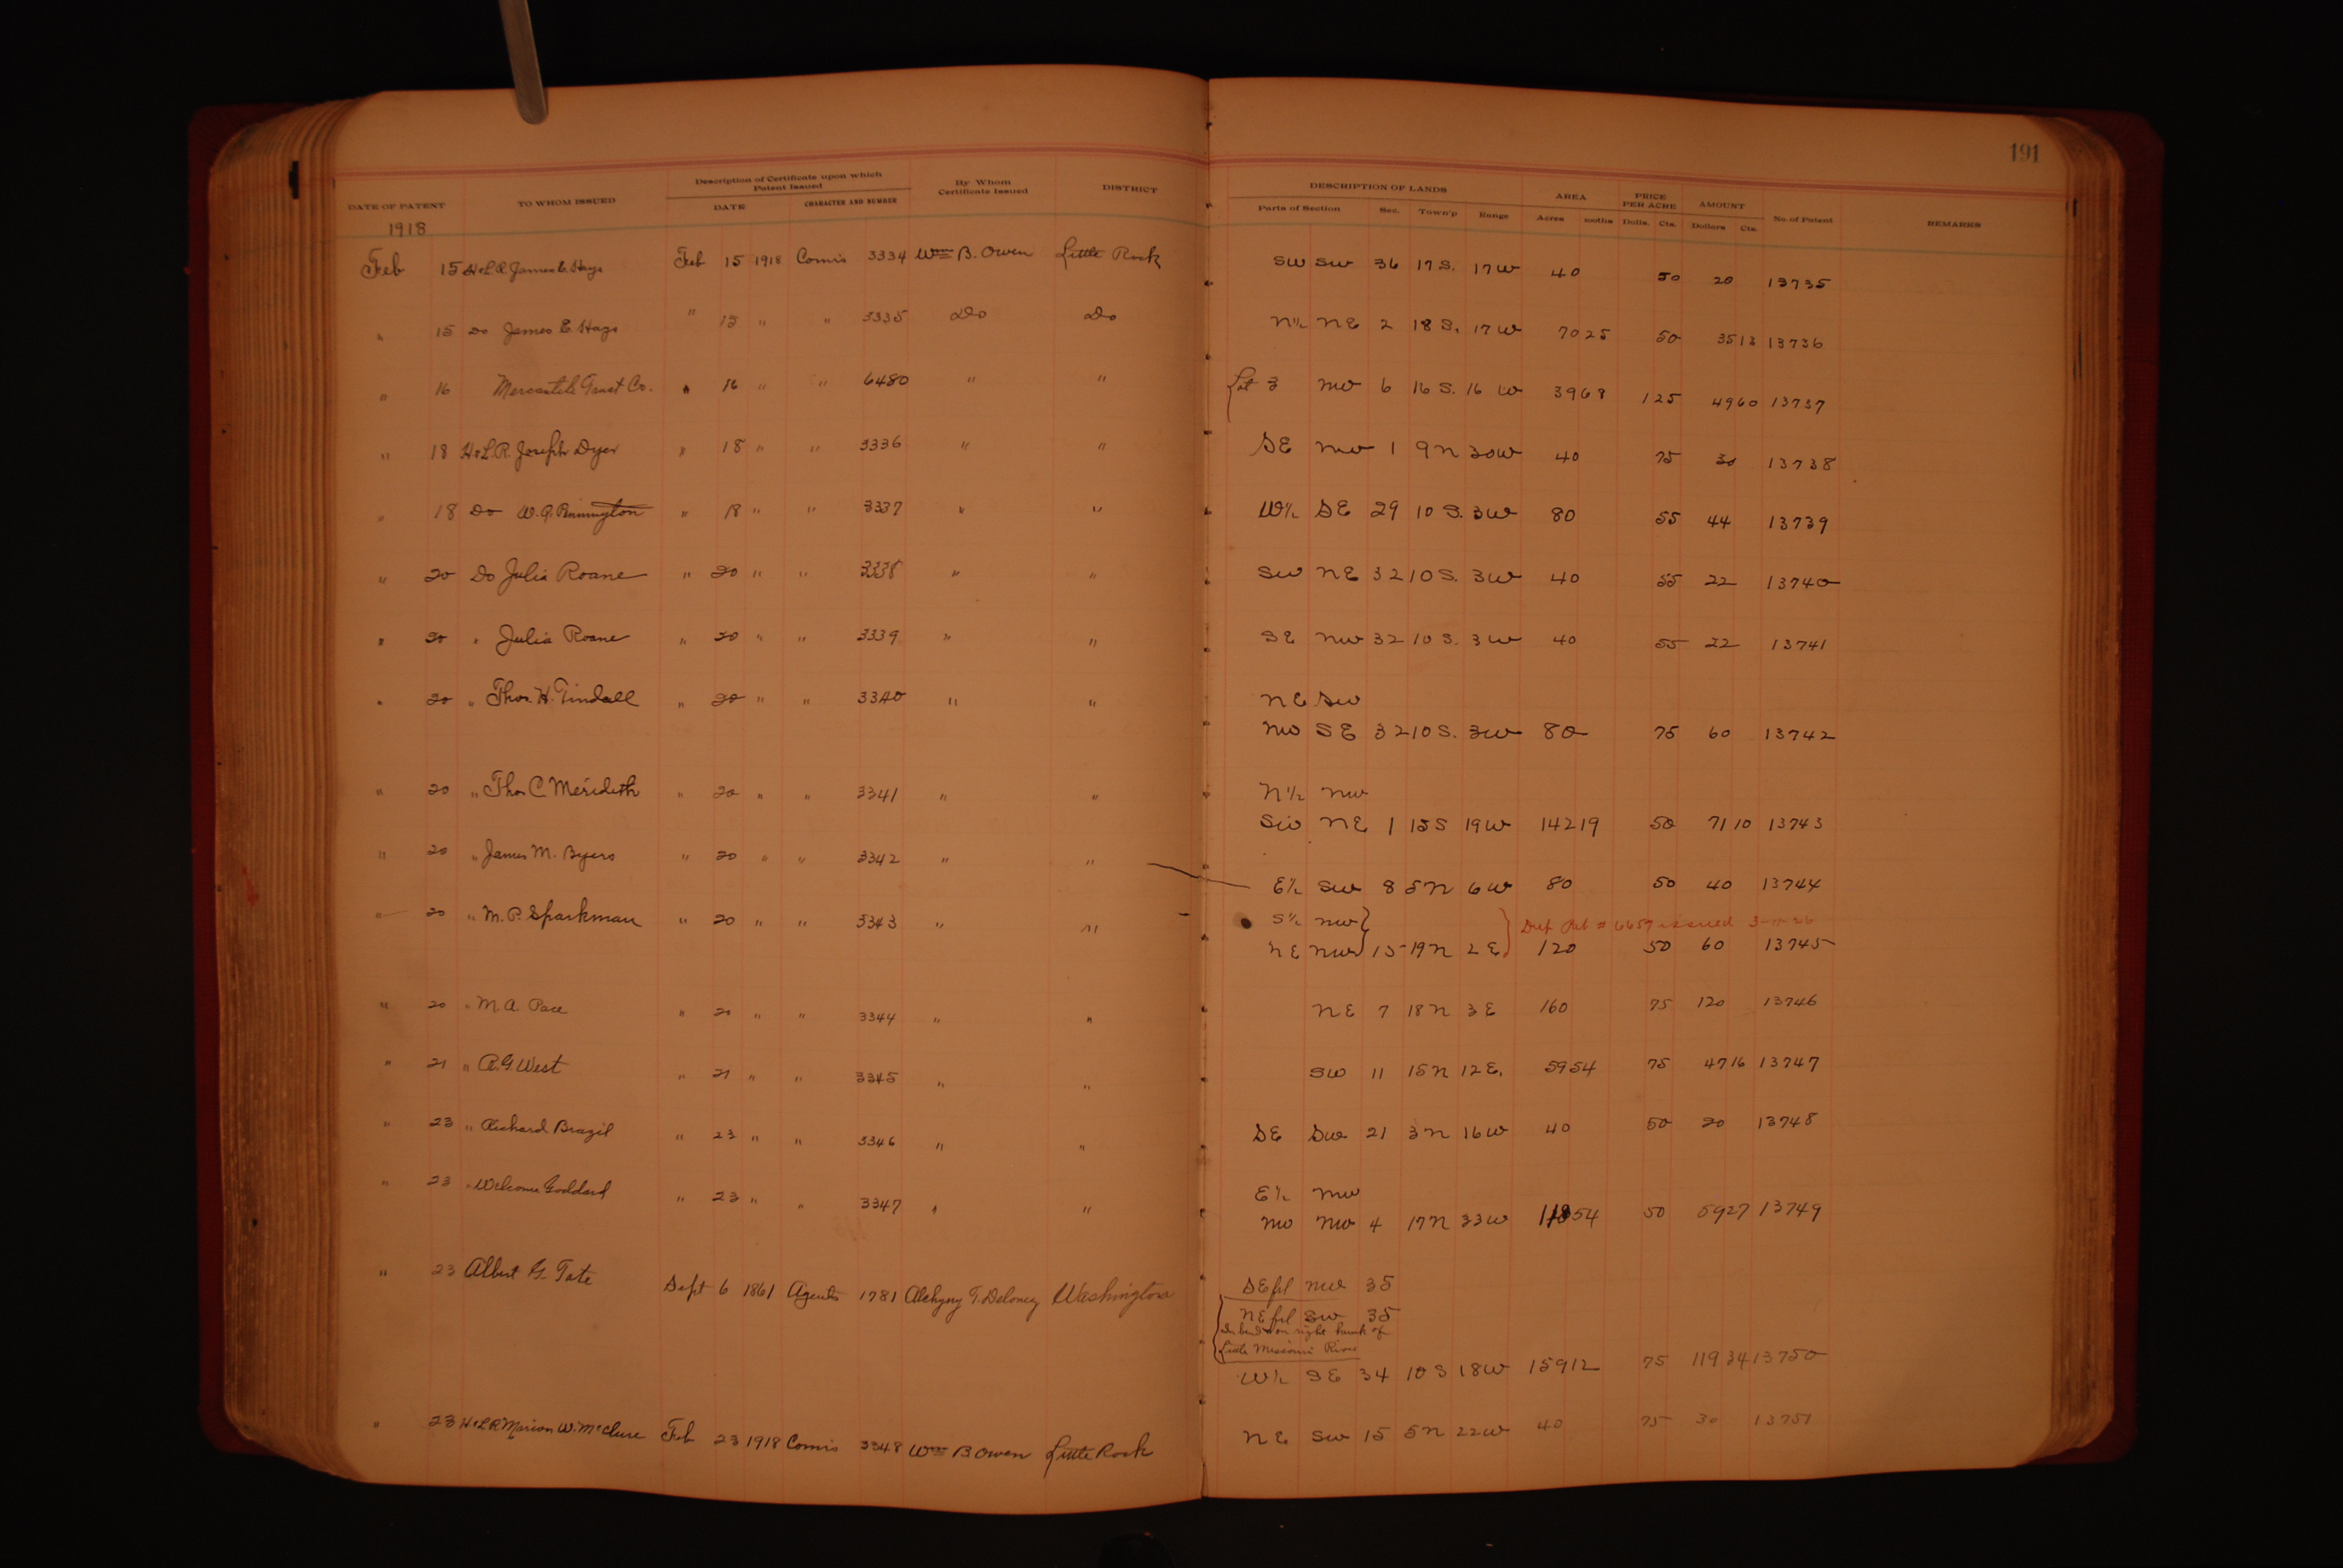 191
Description of Certificate upon which Patent Issued
By Whom Certificate Issued
DISTRICT
DATE OF PATENT TO WHOM ISSUED DATE CHARACTER AND NUMBER
DESCRIPTION OF LANDS AREA PRICE PER ACRE AMOUNT No. of Patent REMARKS
Parts of Section Sec. Town'p Range Acres Dolls. Cts. Dollars Cts.
1918
Feb 15 H&L R James E. Hays Feb 15 1918 Comrs 3334 Wm B. Owen Little Rock SW SW 36 17 S. 17 W 40 50 20 13735
" 15 Do James E Hays " 15 " " 3335 Do Do N½ NE 2 18 S. 17 W 70 25 50 35 13 13736
" 16 Mercantile Trust Co. " 16 " " 6480 " " Lot 3 NW 6 16 S. 16 W 39 68 1 25 49 60 13737
" 18 H&L.R. Joseph Dyer " 18 " " 3336 " " SE NW 1 9 N 30 W 40 75 30 13738
" 18 Do W. A. " 18 " " 3337 " " W½ SE 29 10 S. 3 W 80 55 44 13739
" 20 Do Julia Roane " 20 " " 3338 " " SW NE 32 10 S. 3 W 40 55 22 13740
" 20 " Julia Roane " 20 " " 3339 " " SE NW 32 10 S. 3 W 40 55 22 13741
" 20 " Thos. H. Tindall " 20 " " 3340 " " NE SW
NW SE 32 10 S. 3 W 80 75 60 13742
" 20 " Thos C. Merideth " 20 " " 3341 " " N½ NW
SW NE 1 15 S 19 W 142 19 50 71 10 13743
" 20 " James M. Byers " 20 " " 3342 " " E½ SW 8 5 N 6 W 80 50 40 13744
" 20 " M. P. Sparkman " 20 " " 3343 " " S½ NW
Pat # 6657 issued
NE NW 15 19 N 2 E 120 50 60 13745
" 20 " M. A. Pace " 20 " " 3344 " " NE 7 18 N 3 E 160 75 120 13746
" 21 " A. G. West " 21 " " 3345 " " SW 11 15 N 12 E. 59 54 75 47 16 13747
" 23 " Richard Brazil " 23 " " 3346 " " SE SW 21 3 N 16 W 40 50 20 13748
" 23 " Welcome Goddard " 23 " " 3347 " " E½ NW
NW NW 4 17 N 33 W 118 54 50 59 27 13749
" 23 Albert G. Tate Sept 6 1861 Agents 1781 T. Deloney Washington SE frl NW 35
NE frl SW 35
on right bank of
Little Missouri River
W½ SE 34 10 S 18 W 159 12 75 119 34 13750
" 23 H&L R Marion W. McClure Feb 23 1918 Comrs 3348 Wm B Owen Little Rock NE SW 15 5 N 22 W 40 75 30 13751